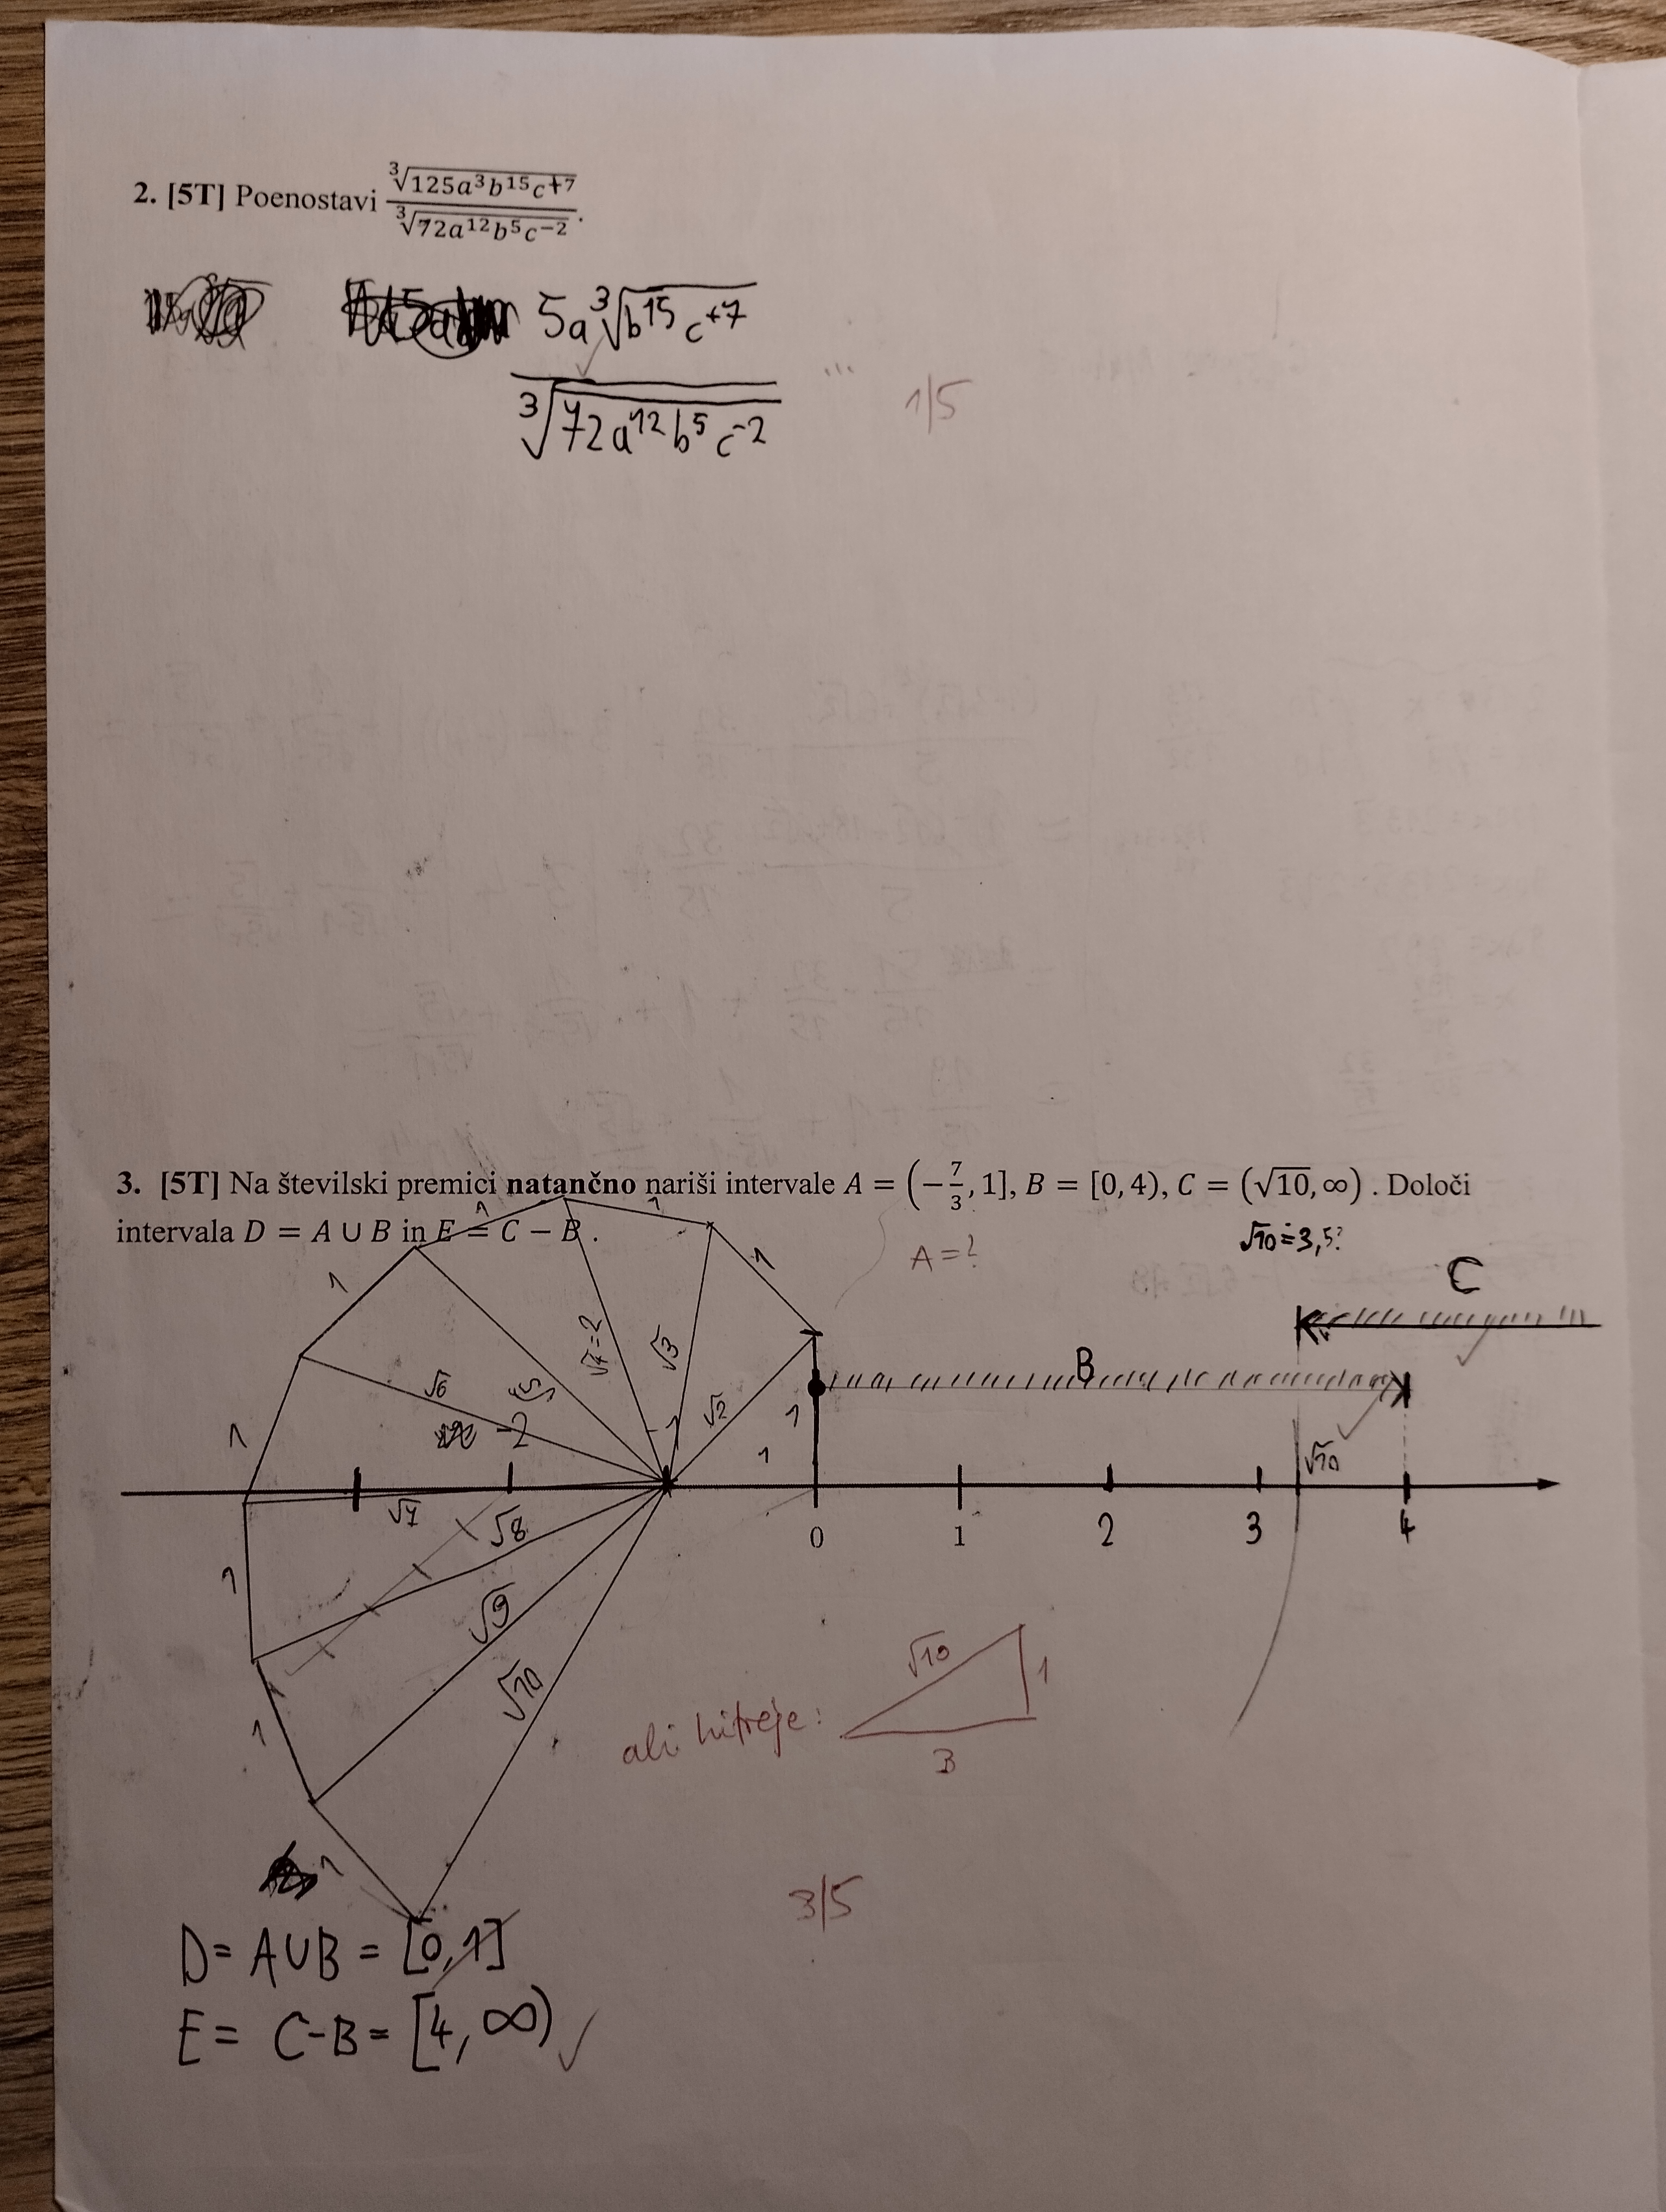 2. [5T] Poenostavi \frac{\sqrt[3]{125a^3b^{15}c^{+7}}}{\sqrt[3]{72a^{12}b^5c^{-2}}}.
5a∛(b¹⁵c⁺⁷)
∛(72a¹²b⁵c⁻²)
... 1/5
3. [5T] Na številski premici natančno nariši intervale A = (−7/3, 1], B = [0, 4), C = (√10, ∞) . Določi
intervala D = A ∪ B in E = C − B .
A = ?
√10 ≐ 3,5?
C
B
1 1 1 1
√2 √3 √4=2 √5 √6
1 1 -2 -1 1 1 √10
√7 √8
0 1 2 3 4
1
√9
√10
1
ali hitreje:
√10 1
3
1
3/5
D= A∪B = [0,1]
E = C-B = [4, ∞) ✓